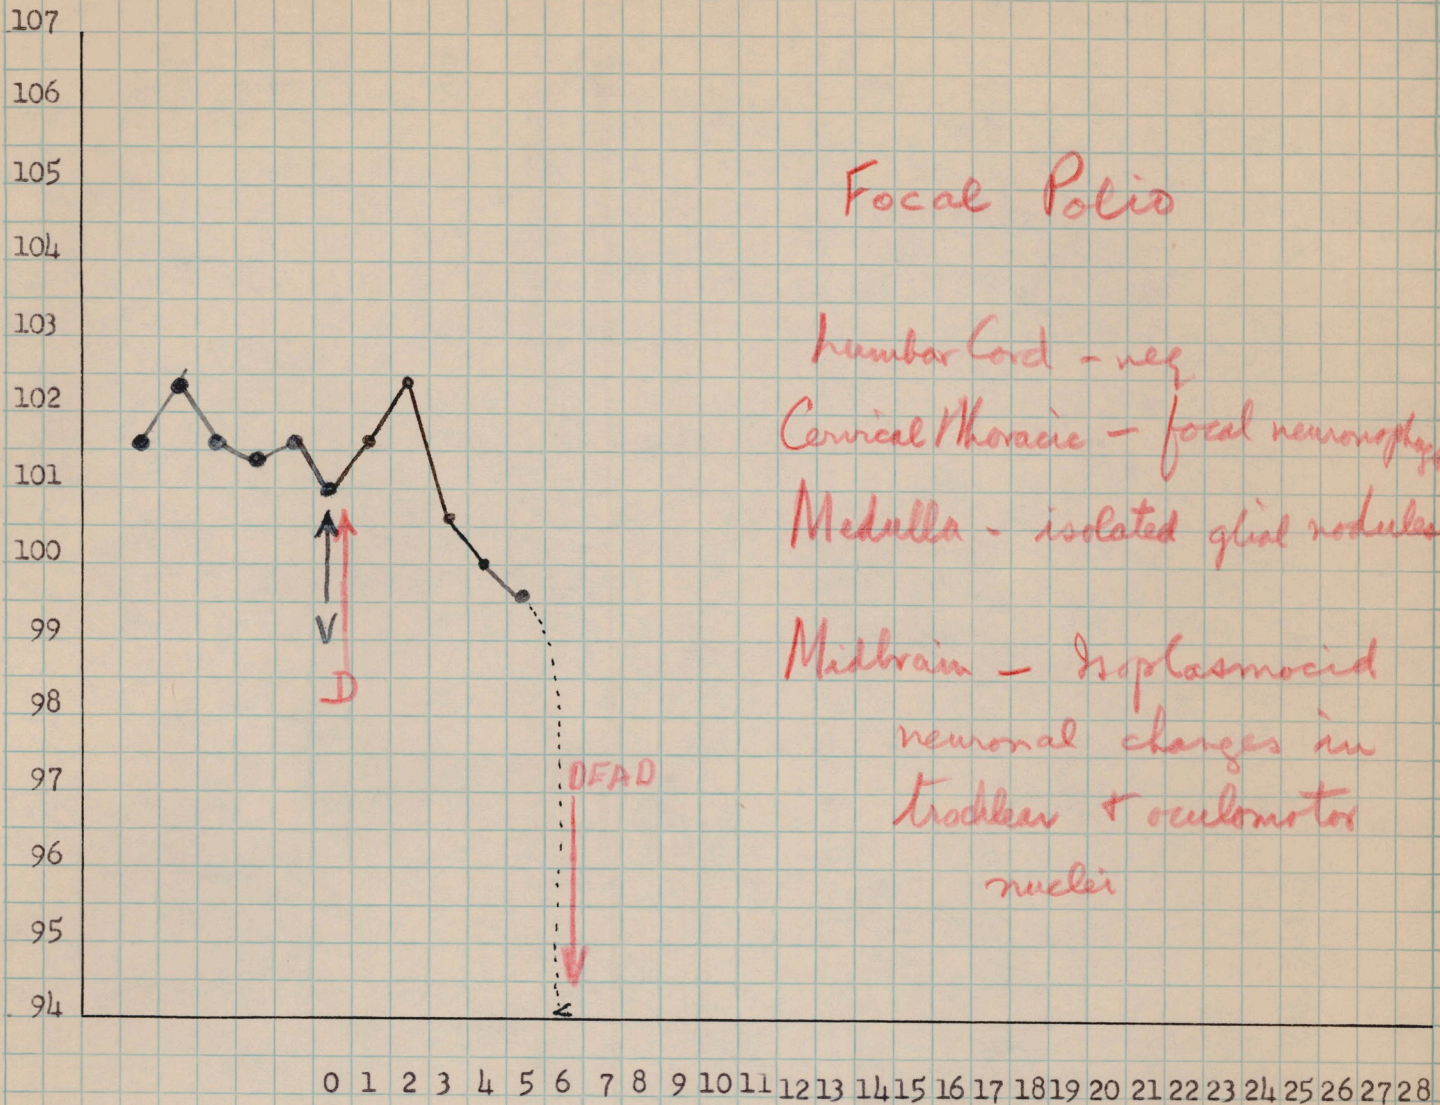 107
106
105
104
103
102
101
100
99
98
97
96
95
94
Focal Polio
Lumbar Cord - neg
Cervical Thoracic - focal neuronophag
Medulla - isolated glial nodules
Midbrain -
neuronal changes in
trochlear + oculomotor
nuclei
V
D
DEAD
<
0 1 2 3 4 5 6 7 8 9 10 11 12 13 14 15 16 17 18 19 20 21 22 23 24 25 26 27 28